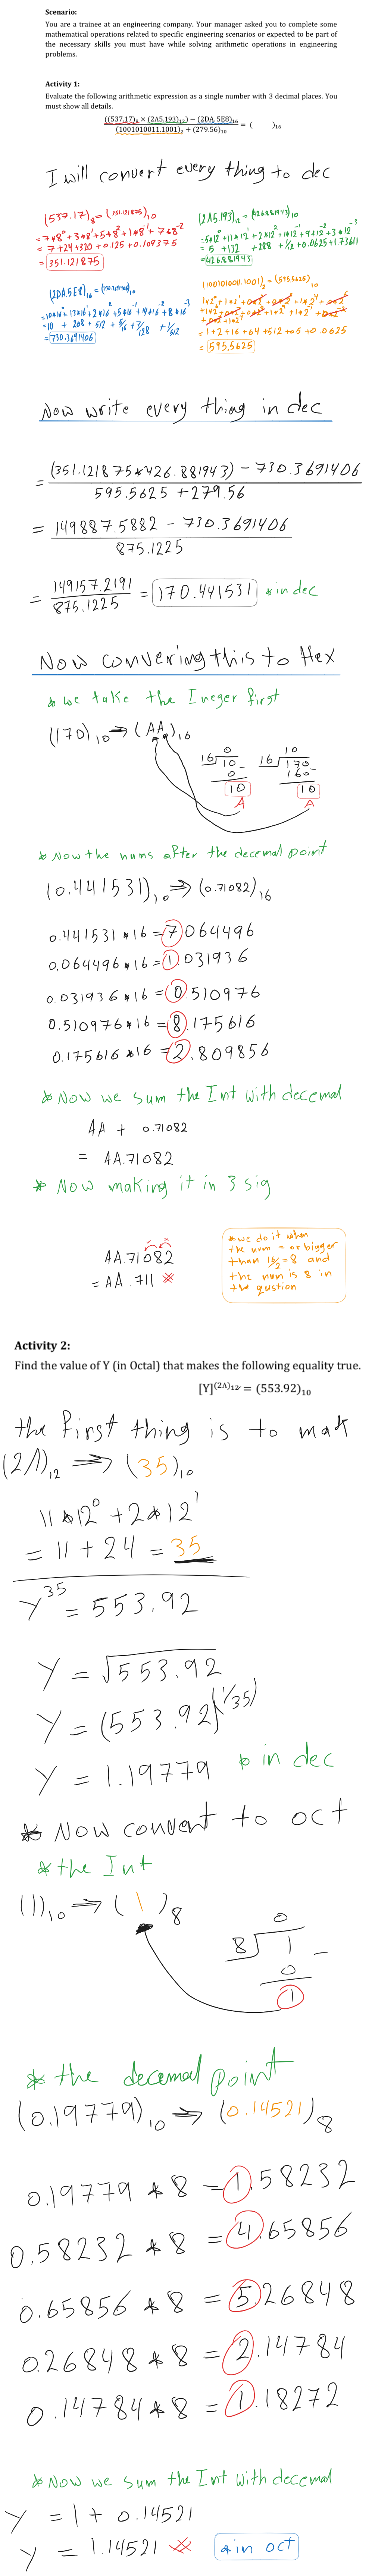 Scenario:
You are a trainee at an engineering company. Your manager asked you to complete some
mathematical operations related to specific engineering scenarios or expected to be part of
the necessary skills you must have while solving arithmetic operations in engineering
problems.
Activity 1:
Evaluate the following arithmetic expression as a single number with 3 decimal places. You
must show all details.
((537.17)₈ × (2Λ5.193)₁₂) − (2DA.5E8)₁₆
(1001010011.1001)₂ + (279.56)₁₀
= ( )₁₆
I will convert every thing to dec
(537.17)₈ = (351.121875)₁₀
= 7*8⁰ + 3*8¹ + 5*8² + 1*8⁻¹ + 7*8⁻²
= 7 + 24 + 320 + 0.125 + 0.109375
= 351.121875
(2Λ5.193)₁₂ = (426.881943)₁₀
= 5*12⁰ + 11*12¹ + 2*12² + 1*12⁻¹ + 9*12⁻² + 3*12⁻³
= 5 + 132 + 288 + 1/12 + 0.0625 + 1.73611
= 426.881943
(2DA.5E8)₁₆ =
= 730.3691406
(1001010011.1001)₂ = (595.5625)₁₀
= 1+2+16+64+512+0.5+0.0625
= 595.5625
Now write every thing in dec
= (351.121875*426.881943) − 730.3691406
595.5625 + 279.56
= 149887.5882 − 730.3691406
875.1225
= 149157.2191
875.1225
= 170.441531 *in dec
Now convering this to Hex
* we take the Ineger first
(170)₁₀ ⇒ (AA)₁₆
0
16 10 −
0
10
A
10
16 170 −
160
10
A
* Now the nums after the decemal point
(0.441531)₁₀ ⇒ (0.71082)₁₆
0.441531 * 16 = 7.064496
0.064496 * 16 = 1.031936
0.031936 * 16 = 0.510976
0.510976 * 16 = 8.175616
0.175616 * 16 = 2.809856
* Now we sum the Int with decemal
AA + 0.71082
= AA.71082
* Now making it in 3 sig
AA.71082
= AA.711
*we do it when
the num = or bigger
than 16/2 = 8 and
the num is 8 in
the qustion
Activity 2:
Find the value of Y (in Octal) that makes the following equality true.
[Y]⁽²Λ⁾¹² = (553.92)₁₀
the first thing is to mak
(2Λ)₁₂ ⇒ (35)₁₀
11*12⁰ + 2*12¹
= 11 + 24 = 35
Y³⁵ = 553.92
Y = √553.92
Y = (553.92)^(1/35)
Y = 1.19779 * in dec
* Now convert to oct
* the Int
(1)₁₀ ⇒ (1)₈
0
8 1 −
0
1
* the decemal point
(0.19779)₁₀ ⇒ (0.14521)₈
0.19779 * 8 = 1.58232
0.58232 * 8 = 4.65856
0.65856 * 8 = 5.26848
0.26848 * 8 = 2.14784
0.14784 * 8 = 1.18272
* Now we sum the Int with decemal
Y = 1 + 0.14521
Y = 1.14521
*in oct